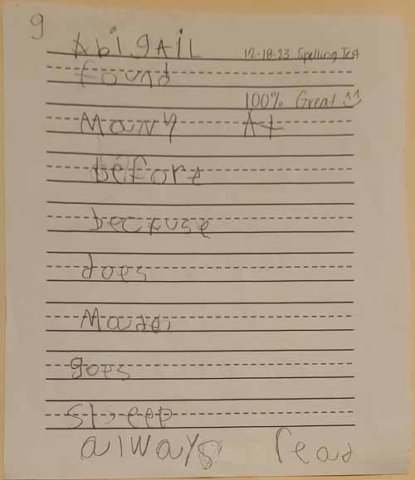 9
AbigAiL 12-18-23 Spelling Test
found
100% Great ☺
Many A+
before
because
does
Made
goes
sleep
always read